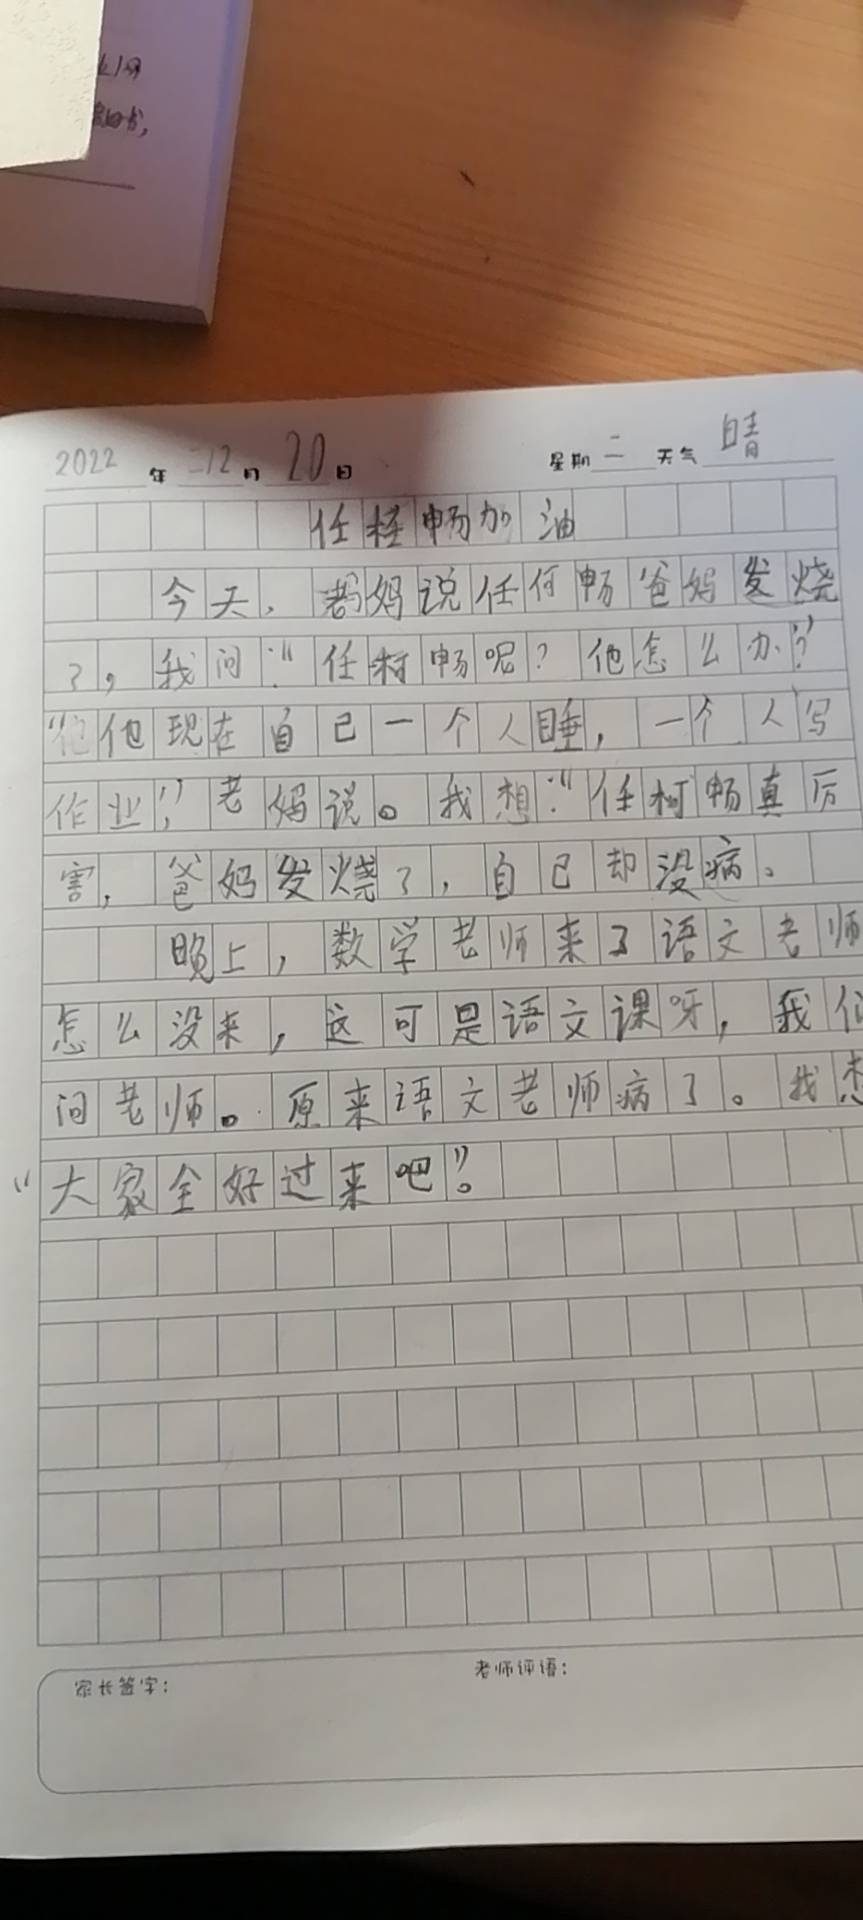 2022年 12月 20日 星期二 天气 晴
任柯畅加油
今天，老妈说任何畅爸妈发烧
了，我问：“任柯畅呢？他怎么办？”
“他现在自己一个人睡，一个人写
作业，”老妈说。我想：“任柯畅真厉
害，爸妈发烧了，自己却没病。
晚上，数学老师来了语文老师
怎么没来，这可是语文课呀，我们
问老师。原来语文老师病了。我想
“大家全好过来吧”。
家长签字：
老师评语：